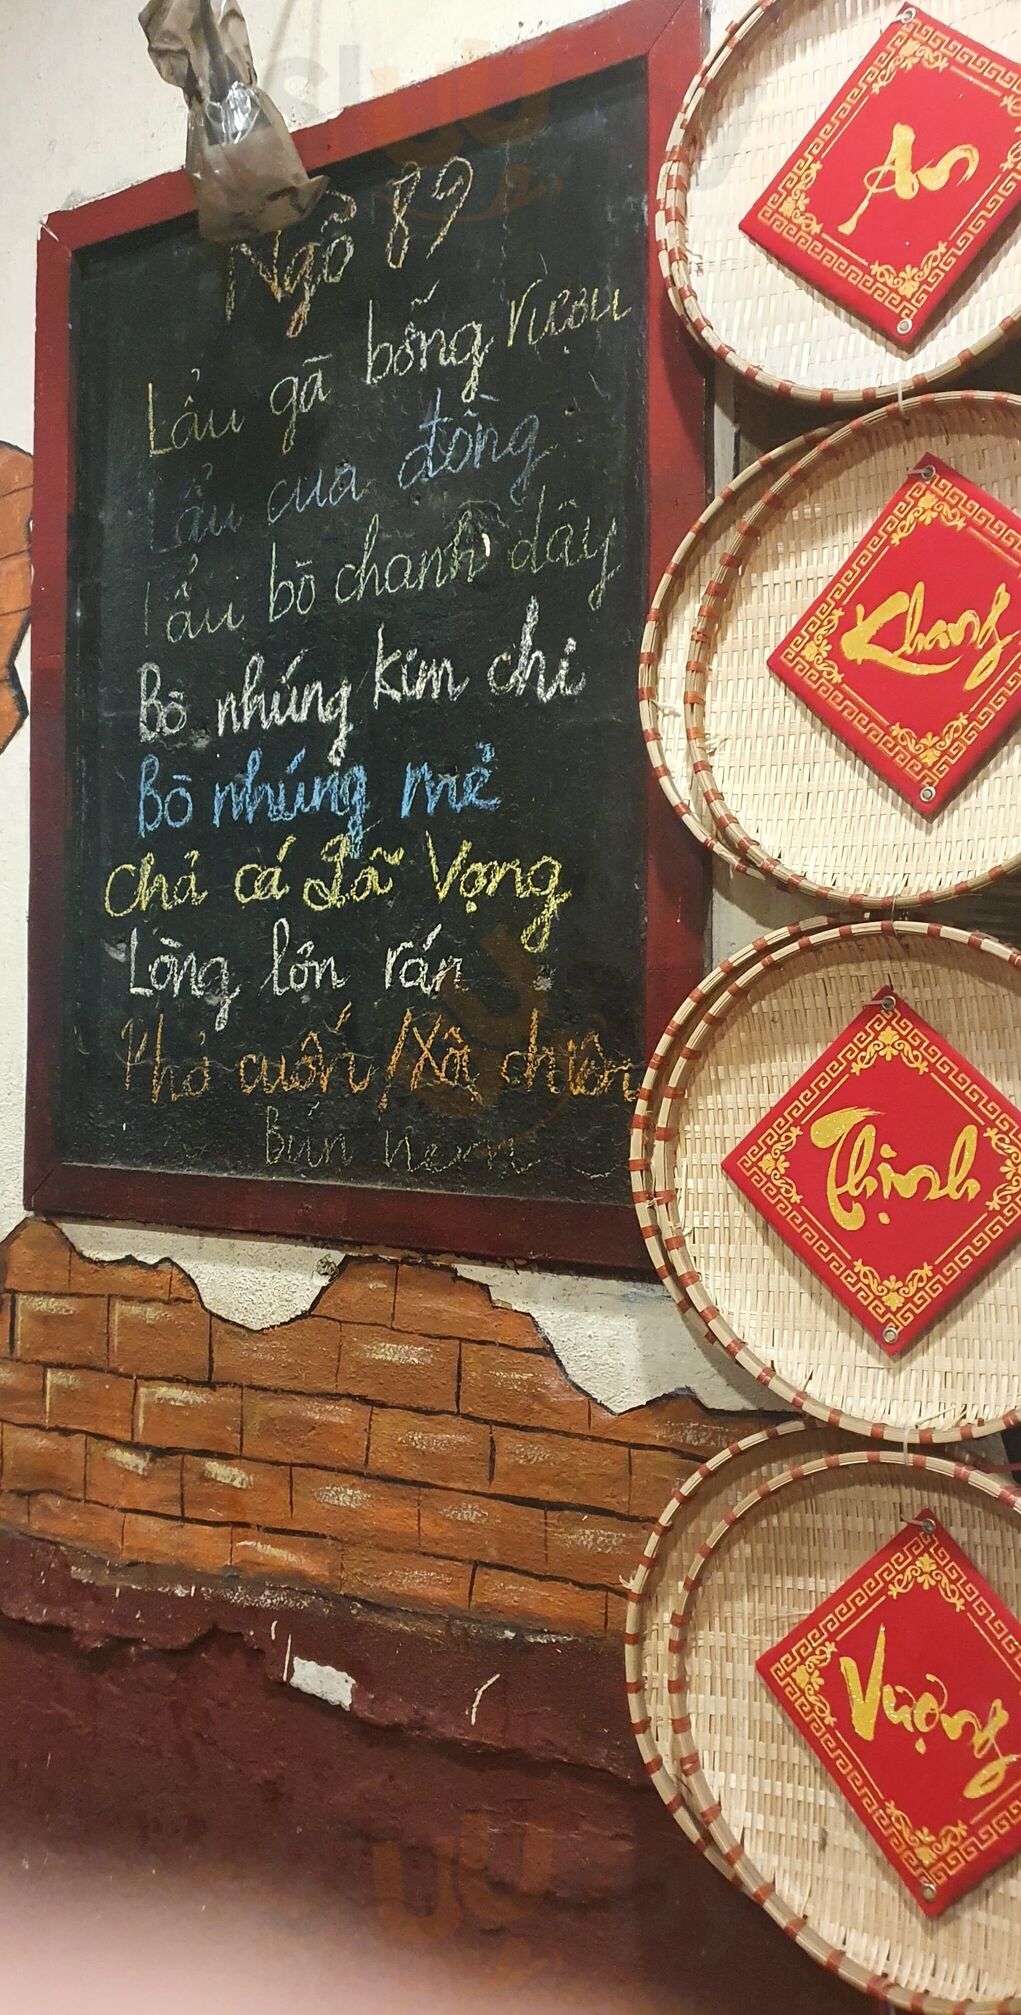 Ngõ 89
Lẩu gà bỗng rượu
Lẩu cua đồng
Lẩu bò chanh dây
Bò nhúng kim chi
Bò nhúng mẻ
Chả cá Lã Vọng
Lòng lợn rán
Phở cuốn/Xôi chiên
Bún nem
An
Khang
Thịnh
Vượng